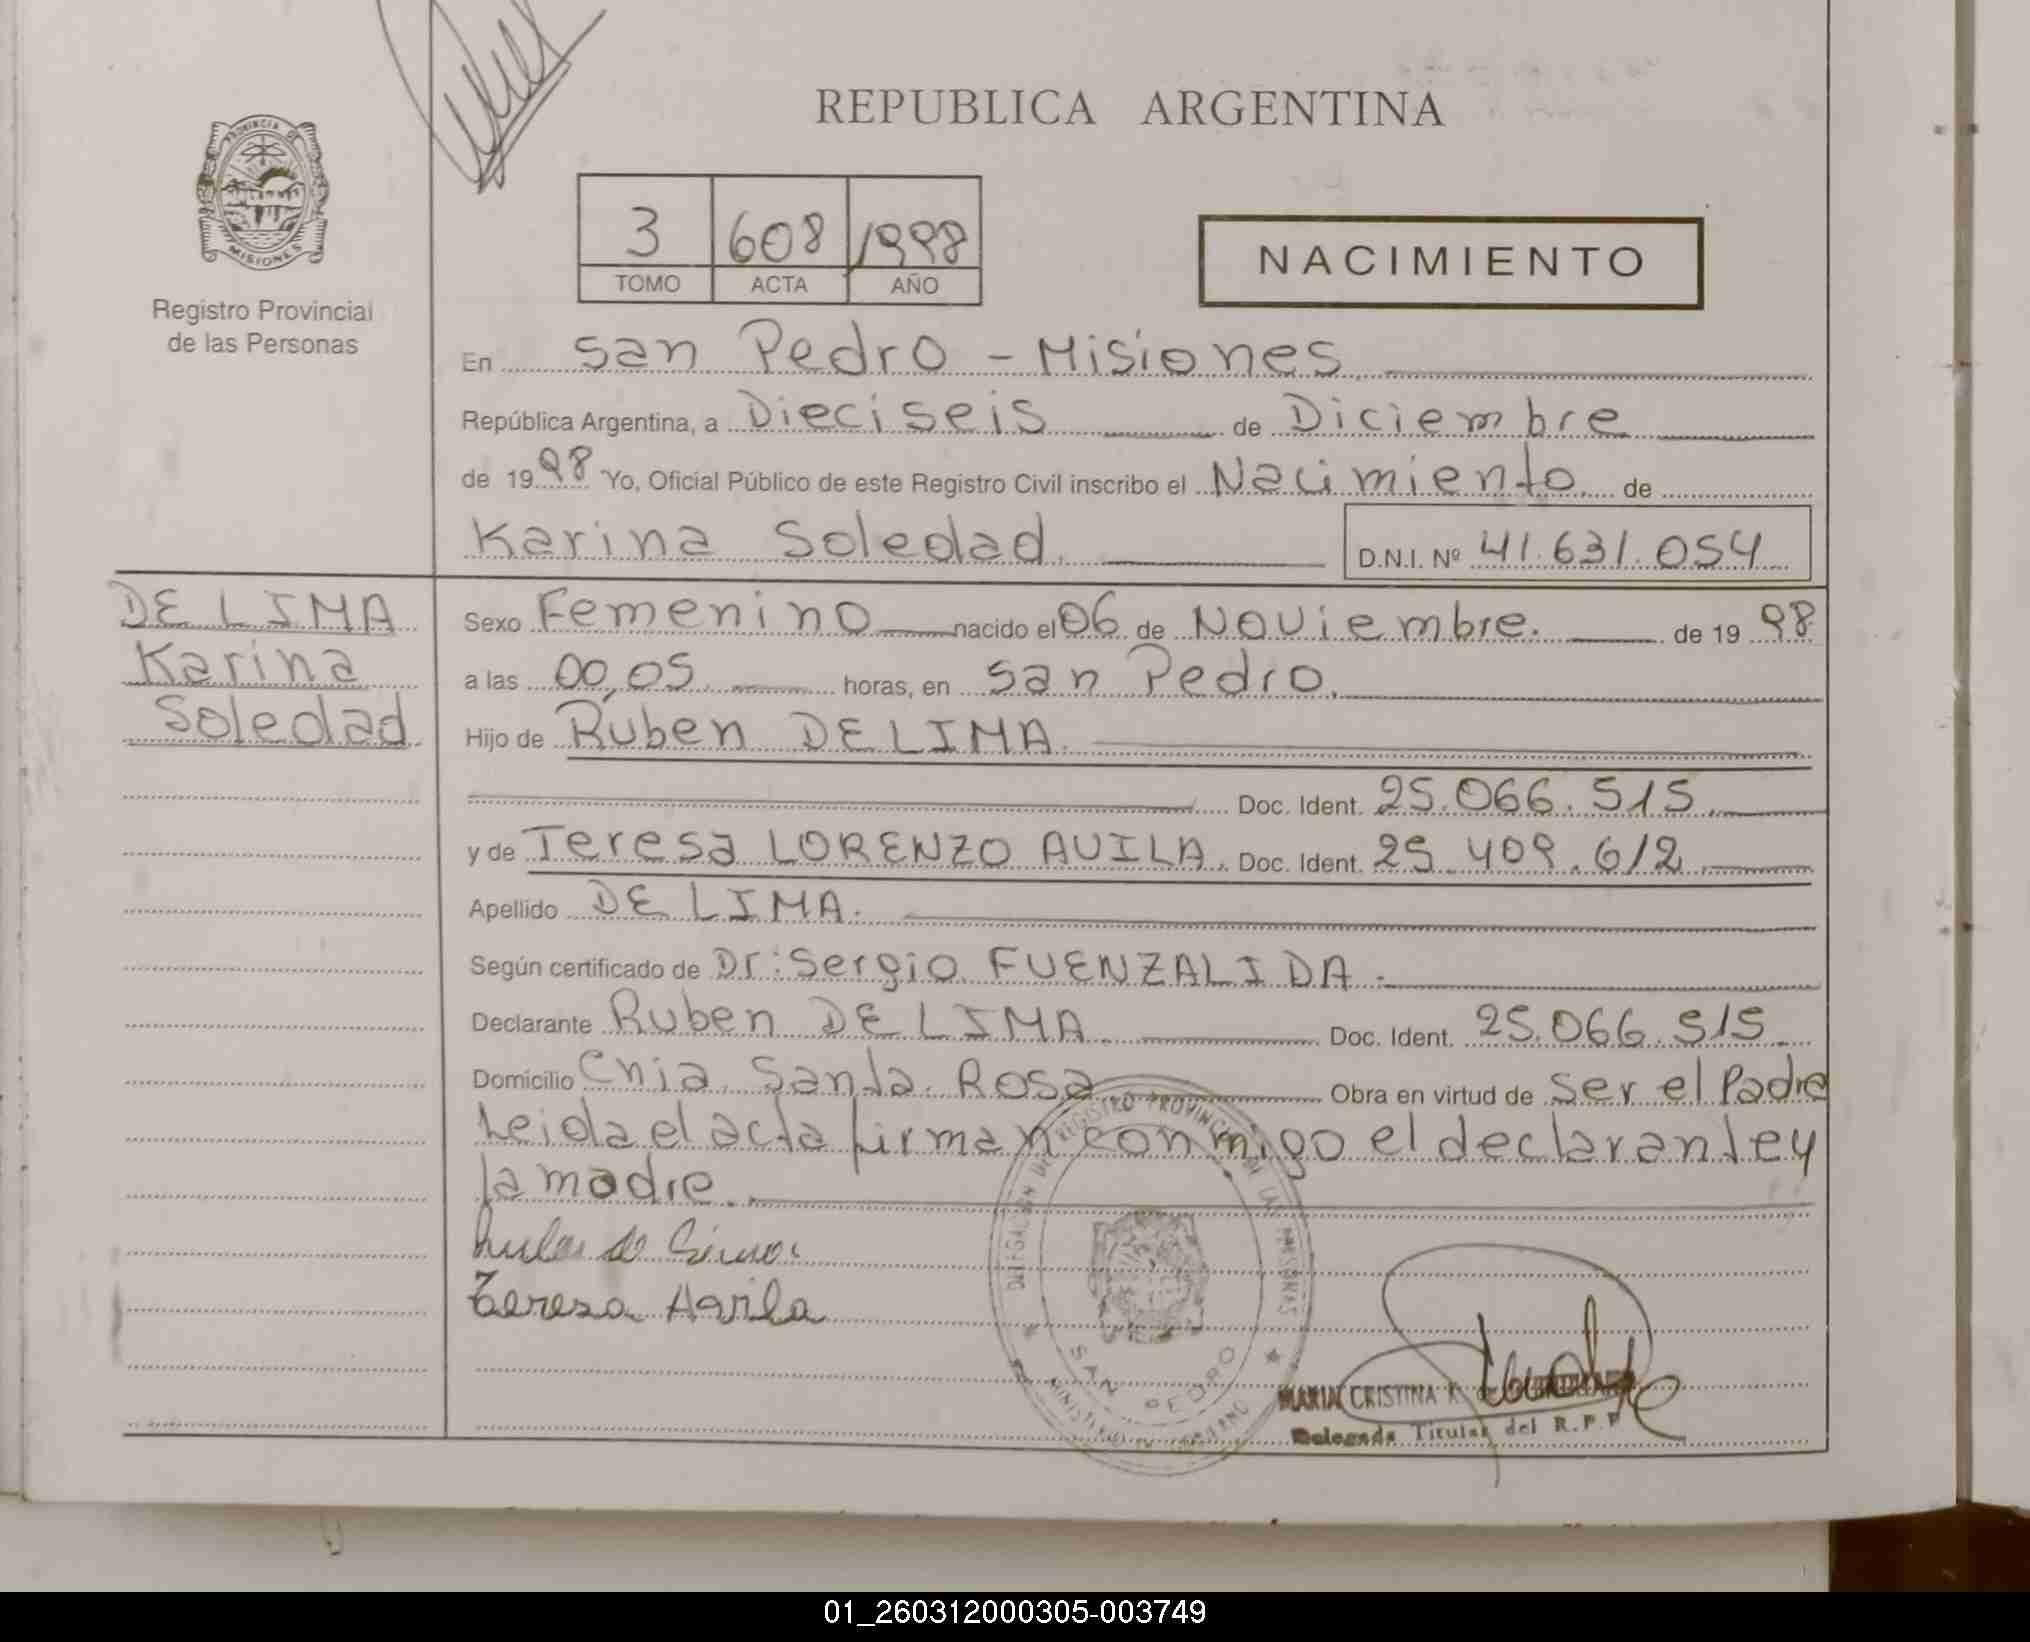 REPUBLICA ARGENTINA
PROVINCIA DE
MISIONES
Registro Provincial
de las Personas
3 608 1998
TOMO ACTA AÑO
NACIMIENTO
En San Pedro - Misiones
República Argentina, a Dieciseis de Diciembre
de 1998 Yo, Oficial Público de este Registro Civil inscribo el Nacimiento de
Karina Soledad. D.N.I. Nº 41.631.054
DE LIMA
Karina
Soledad
Sexo Femenino nacido el 06 de Noviembre. de 19 98
a las 00,05 horas, en San Pedro.
Hijo de Ruben DE LIMA.
Doc. Ident. 25.066.515
y de Teresa LORENZO AVILA. Doc. Ident. 25.409.612
Apellido DE LIMA.
Según certificado de Dr: Sergio FUENZALIDA.
Declarante Ruben DE LIMA Doc. Ident. 25.066.515
Domicilio Cnia. Santa Rosa Obra en virtud de ser el Padre
Leida el acta firman conmigo el declarante y
la madre.
de
Teresa Avila
DELEGACION DEL REGISTRO PROVINCIAL DE LAS PERSONAS
SAN PEDRO
MINISTERIO DE GOBIERNO
MARIA CRISTINA
Delegada Titular del R.P.P
01_260312000305-003749